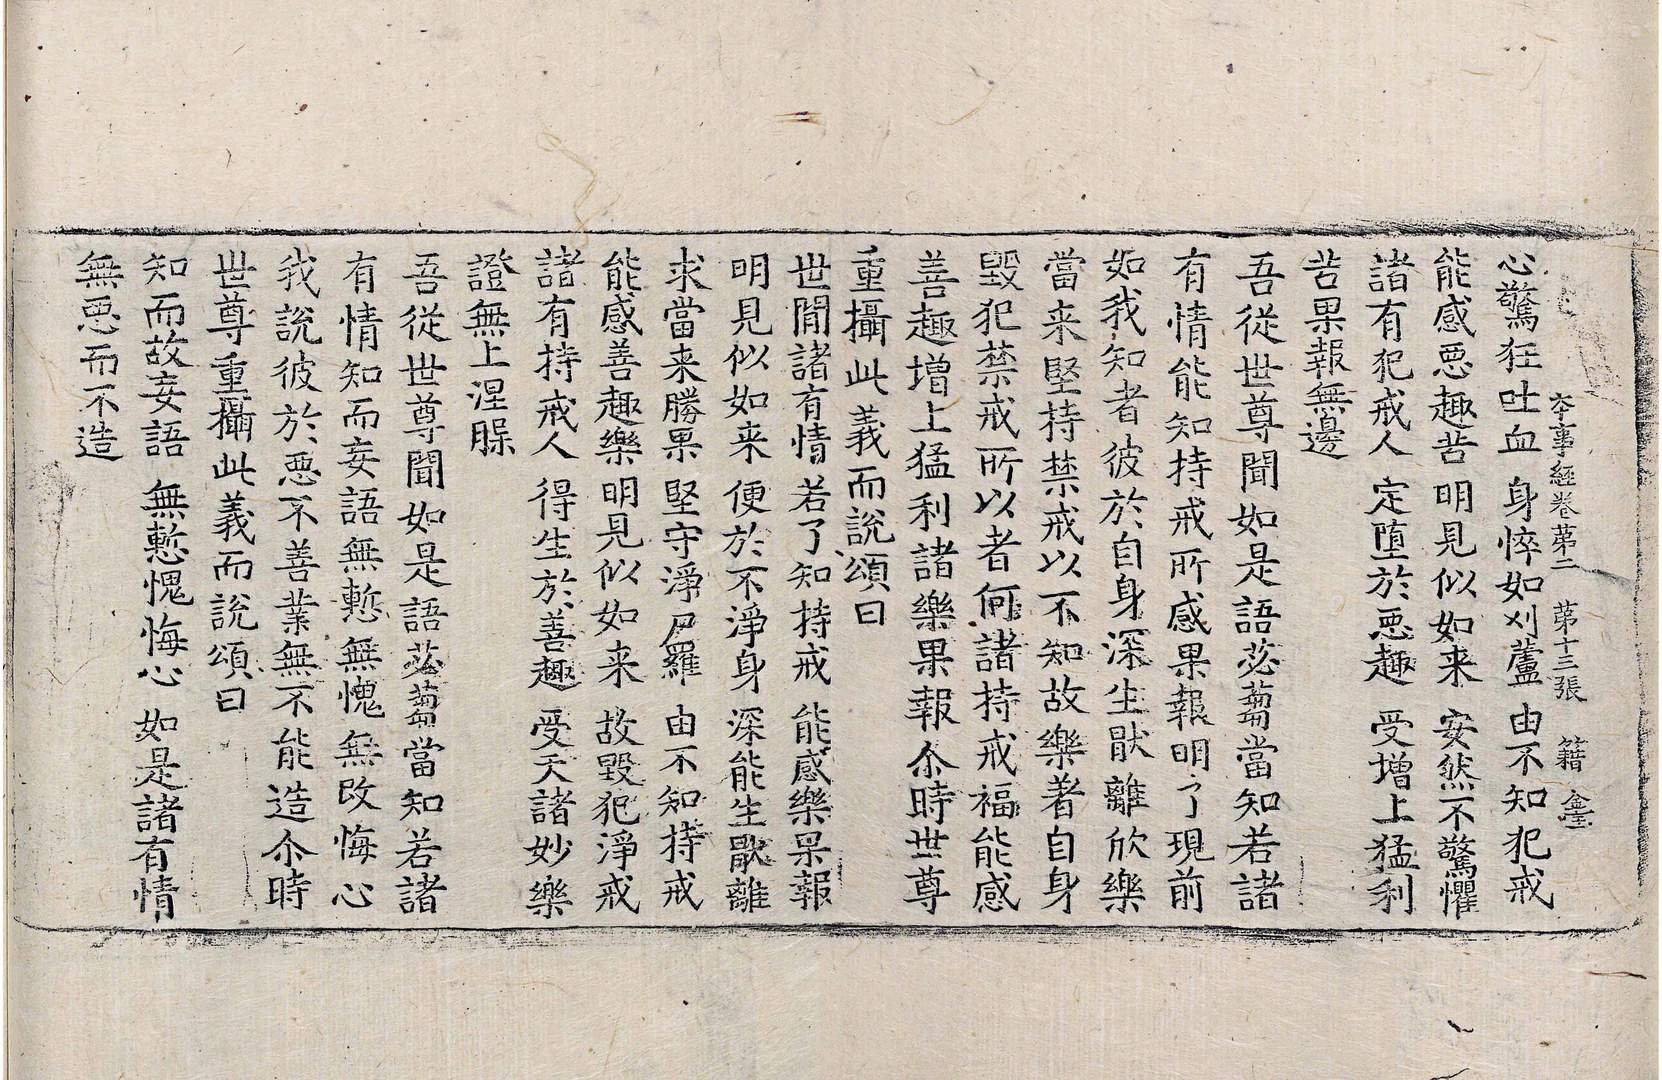 本事經卷第二 第十三張 籍
心驚狂吐血 身悴如刈蘆 由不知犯戒
能感惡趣苦 明見似如来 安然不驚懼
諸有犯戒人 定墮於惡趣 受增上猛利
苦果報無邊
吾從世尊聞如是語苾蒭當知若諸
有情能知持戒所感果報明了現前
如我知者彼於自身深生猒離欣樂
當来堅持禁戒以不知故樂著自身
毀犯禁戒所以者何諸持戒福能感
善趣增上猛利諸樂果報尒時世尊
重攝此義而說頌曰
世間諸有情 若了知持戒 能感樂果報
明見似如来 便於不淨身 深能生猒離
求當来勝果 堅守淨尸羅 由不知持戒
能感善趣樂 明見似如来 故毀犯淨戒
諸有持戒人 得生於善趣 受天諸妙樂
證無上涅槃
吾從世尊聞如是語苾蒭當知若諸
有情知而妄語無慙無愧無改悔心
我說彼於惡不善業無不能造尒時
世尊重攝此義而說頌曰
知而故妄語 無慙愧悔心 如是諸有情
無惡而不造